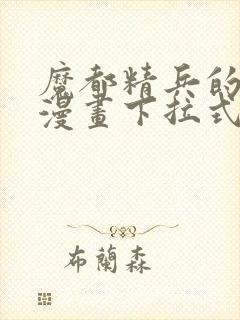 魔都精兵的
漫畫下拉式
布蘭森